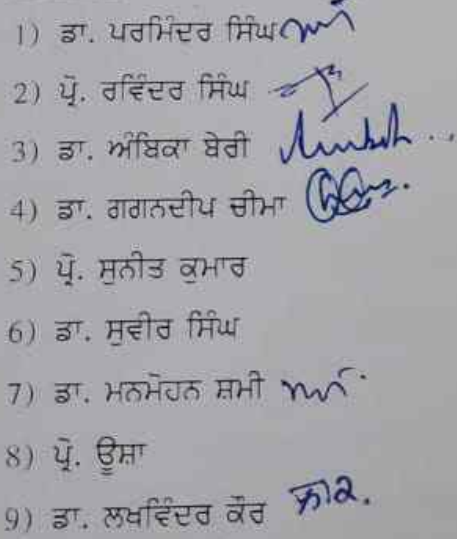 1) ਡਾ. ਪਰਮਿੰਦਰ ਸਿੰਘ
2) ਪ੍ਰੋ. ਰਵਿੰਦਰ ਸਿੰਘ
3) ਡਾ. ਅੰਬਿਕਾ ਬੇਰੀ
4) ਡਾ. ਗਗਨਦੀਪ ਚੀਮਾ
5) ਪ੍ਰੋ. ਸੁਨੀਤ ਕੁਮਾਰ
6) ਡਾ. ਸੁਵੀਰ ਸਿੰਘ
7) ਡਾ. ਮਨਮੋਹਨ ਸ਼ਮੀ
8) ਪ੍ਰੋ. ਊਸ਼ਾ
9) ਡਾ. ਲਖਵਿੰਦਰ ਕੌਰ